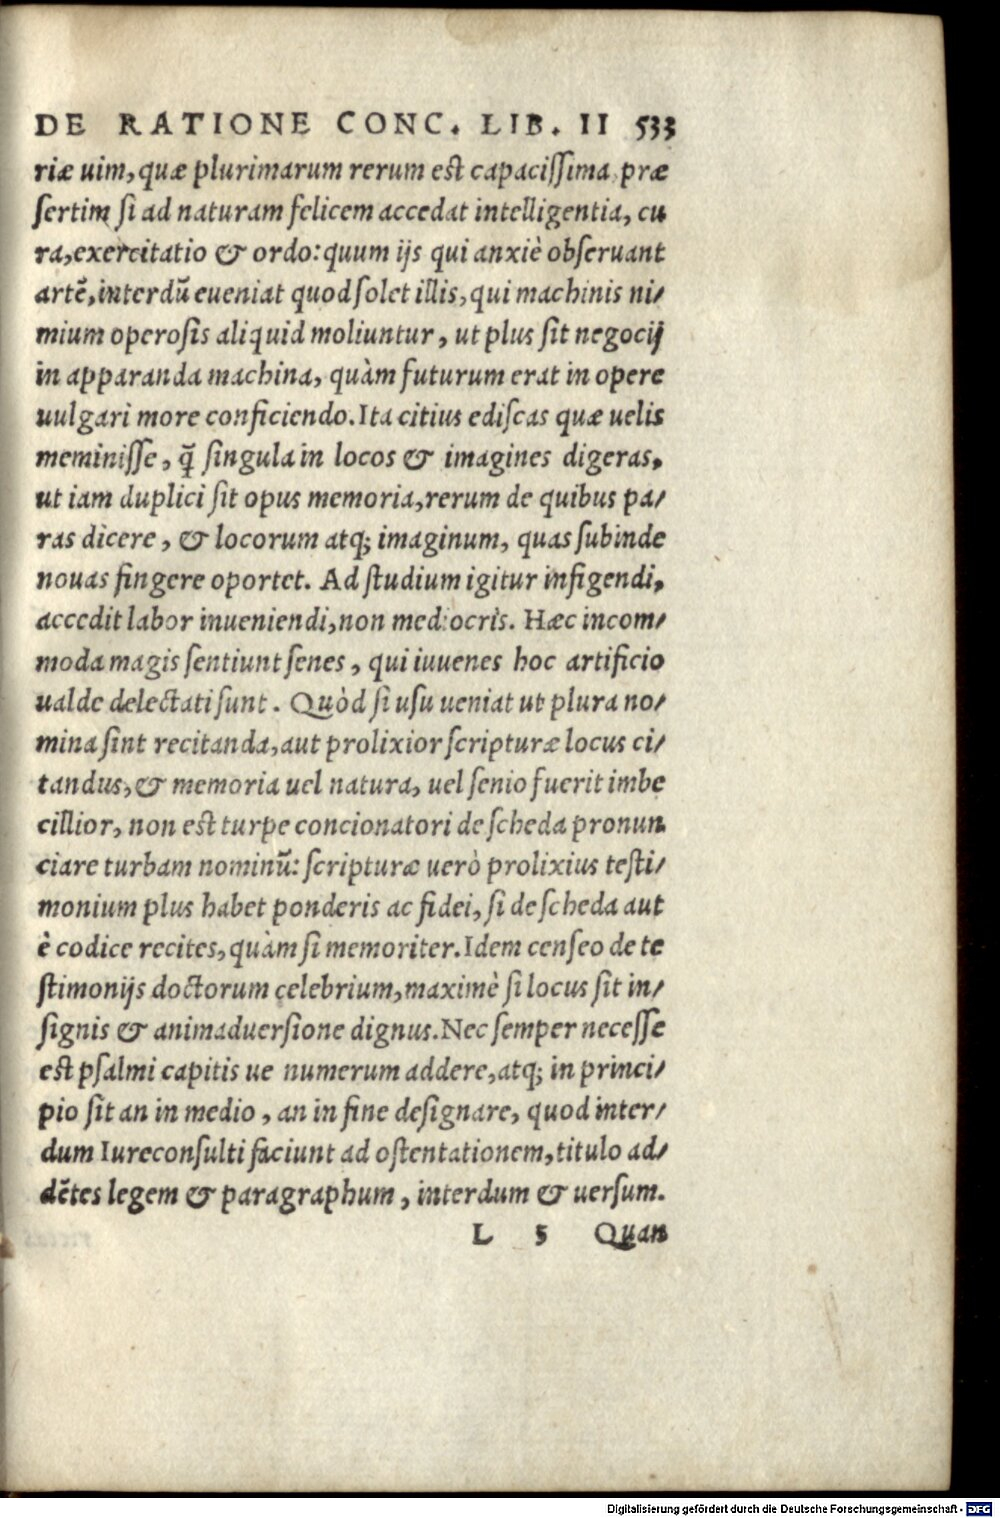 DE RATIONE CONC. LIB. II 533
riæ uim, quæ plurimarum rerum est capacissima, præ
sertim si ad naturam felicem accedat intelligentia, cu
ra, exercitatio & ordo: quum ijs qui anxiè obseruant
artẽ, interdũ eueniat quod solet illis, qui machinis ni/
mium operosis aliquid moliuntur, ut plus sit negocij
in apparanda machina, quàm futurum erat in opere
uulgari more conficiendo. Ita citius ediscas quæ uelis
meminisse, q̃ singula in locos & imagines digeras,
ut iam duplici sit opus memoria, rerum de quibus pa/
ras dicere, & locorum atq; imaginum, quas subinde
nouas fingere oportet. Ad studium igitur infigendi,
accedit labor inueniendi, non mediocris. Hæc incom/
moda magis sentiunt senes, qui iuuenes hoc artificio
ualde delectati sunt. Quòd si usu ueniat ut plura no/
mina sint recitanda, aut prolixior scripturæ locus ci/
tandus, & memoria uel natura, uel senio fuerit imbe
cillior, non est turpe concionatori de scheda pronun
ciare turbam nominũ: scripturæ uerò prolixius testi/
monium plus habet ponderis ac fidei, si de scheda aut
è codice recites, quàm si memoriter. Idem censeo de te
stimonijs doctorum celebrium, maximè si locus sit in/
signis & animaduersione dignus. Nec semper necesse
est psalmi capitis ue numerum addere, atq; in princi/
pio sit an in medio, an in fine designare, quod inter/
dum Iureconsulti faciunt ad ostentationem, titulo ad/
dẽtes legem & paragraphum, interdum & uersum.
L 5 Quan
Digitalisierung gefördert durch die Deutsche Forschungsgemeinschaft - DFG